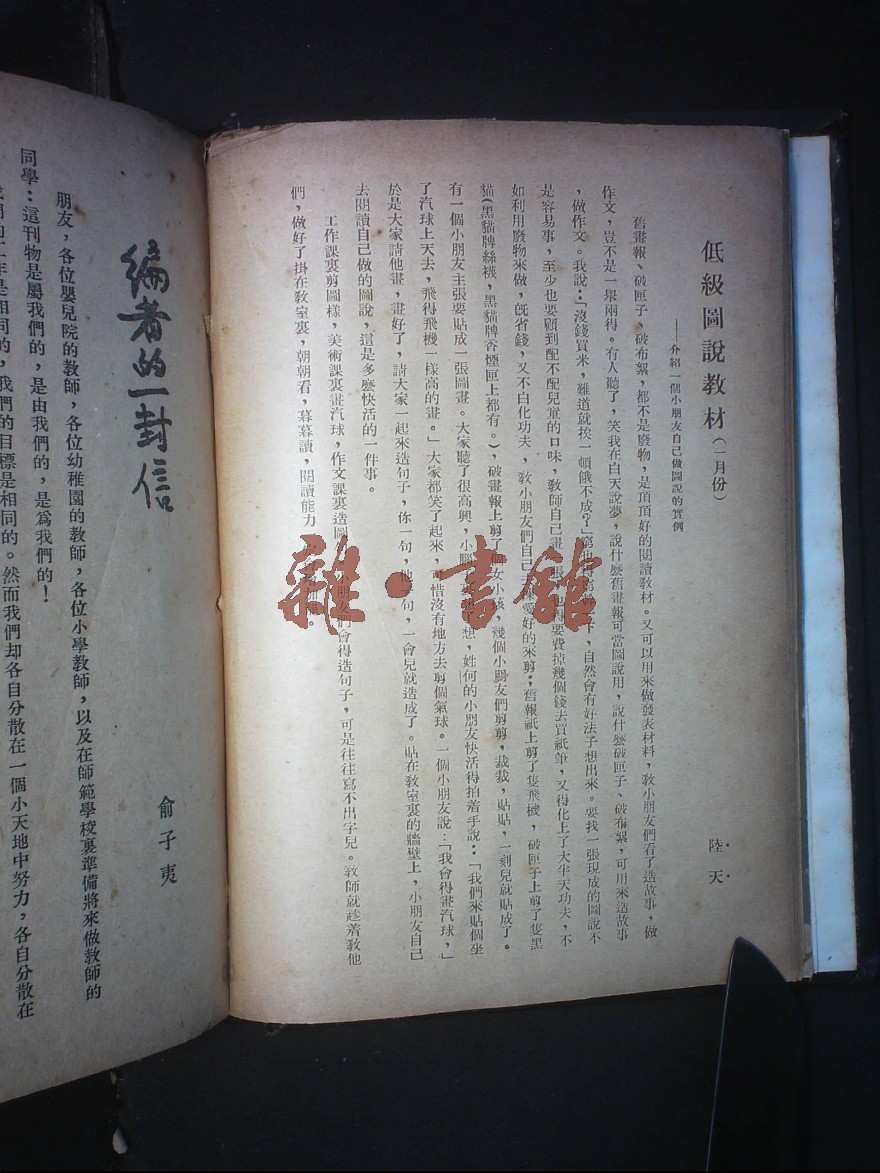 低級圖說教材(一月份)
——介紹一個小朋友自己做圖說的實例
陸天
舊畫報、破匣子、破布絮，都不是廢物，是頂頂好的閱讀教材。又可以用來做發表材料，教小朋友們看了造故事，做
作文，豈不是一舉兩得。有人聽了，笑我在白天說夢，說什麼舊畫報可當圖說用，說什麼破匣子、破布絮，可用來造故事
，做作文。我說：「沒錢買米，難道就挨一頓餓不成？」，自然會有好法子想出來。要找一張現成的圖說不
是容易事，至少也要顧到配不配兒童的口味，教師自己畫一張，也得要費掉幾個錢去買紙筆，又得化上了大半天功夫，不
如利用廢物來做，旣省錢，又不白化功夫，教小朋友們自己愛好的來剪；舊報紙上剪了隻飛機，破匣子上剪了隻黑
貓(黑貓牌絲襪，黑貓牌香煙匣上都有。)，破畫報上剪了個女小孩，幾個小朋友們剪剪，裁裁，貼貼，一刻兒就貼成了。
有一個小朋友主張要貼成一張圖畫。大家聽了很高興，想，姓何的小朋友快活得拍着手說：「我們來貼個坐
了汽球上天去，飛得飛機一樣高的畫。」大家都笑了起來，可惜沒有地方去剪個氣球。一個小朋友說：「我會得畫汽球，」
於是大家請他畫，畫好了，請大家一起來造句子，你一句，他一句，一會兒就造成了。貼在教室裏的牆壁上，小朋友自己
去閱讀自己做的圖說，這是多麼快活的一件事。
工作課裏剪圖樣，美術課裏畫汽球，作文課裏造圖，小朋友們會得造句子，可是往往寫不出字兒。教師就趁着教他
們，做好了掛在教室裏，朝朝看，暮暮讀，閱讀能力
雜·書館
編者的一封信
俞子夷
朋友，各位嬰兒院的教師，各位幼稚園的教師，各位小學教師，以及在師範學校裏準備將來做教師的
同學：這刊物是屬我們的，是由我們的，是爲我們的！
是相同的，我們的目標是相同的。然而我們却各自分散在一個小天地中努力，各自分散在